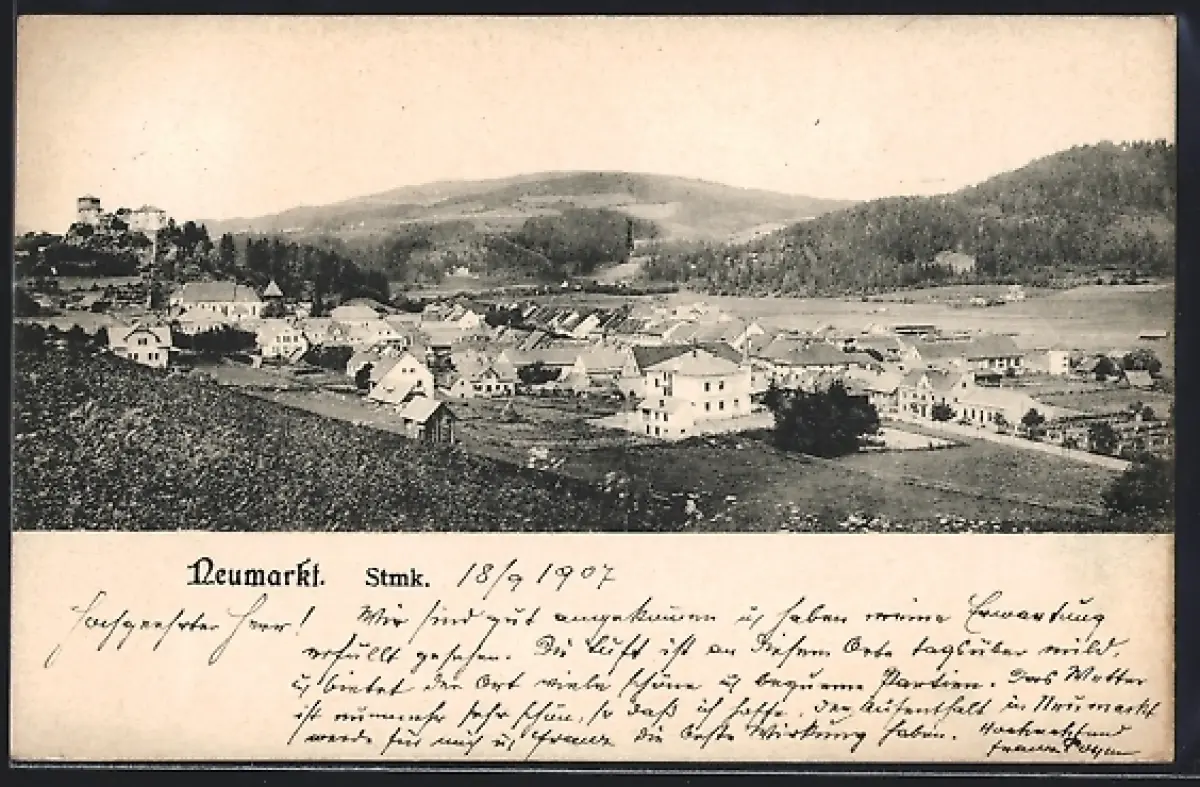 Neumarkt. Stmk. 18/9 1907
Hochgeehrter Herr! Wir sind gut angekommen u. haben meine Erwartung
erfüllt gesehen. Die Luft ist an diesem Orte tagsüber mild,
u. bietet der Ort viele schöne u. bequeme Partien. Das Wetter
ist nunmehr sehr schön, so daß ich hoffe, der Aufenthalt in Neumarkt
werde für mich u. Franz die beste Wirkung haben. Hochachtend